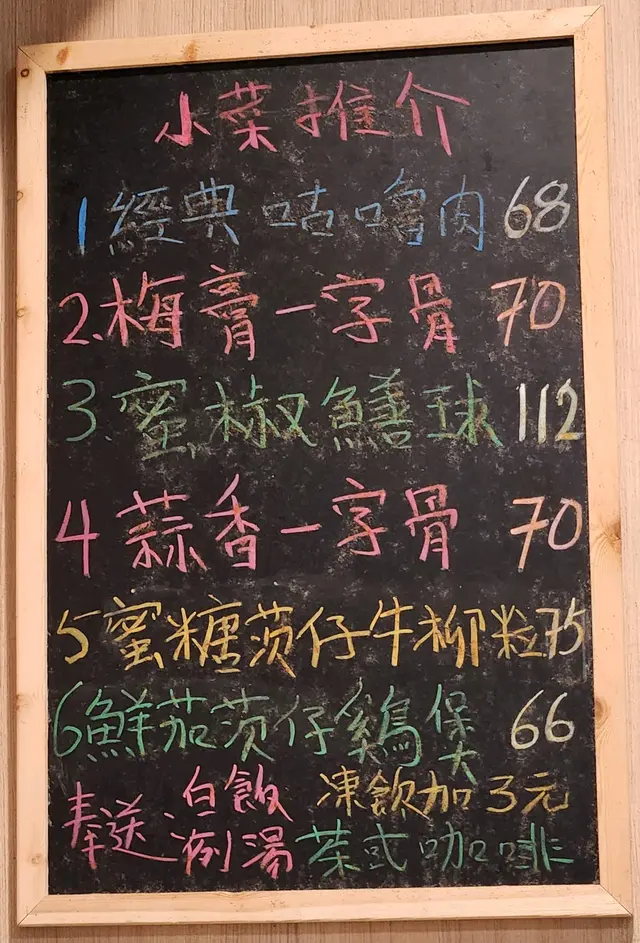 小菜推介
1 經典咕嚕肉 68
2. 梅膏一字骨 70
3. 蜜椒鱔球 112
4 蒜香一字骨 70
5 蜜糖茨仔牛柳粒 75
6 鮮茄茨仔雞煲 66
奉送 白飯 凍飲加3元
例湯 茶或咖啡